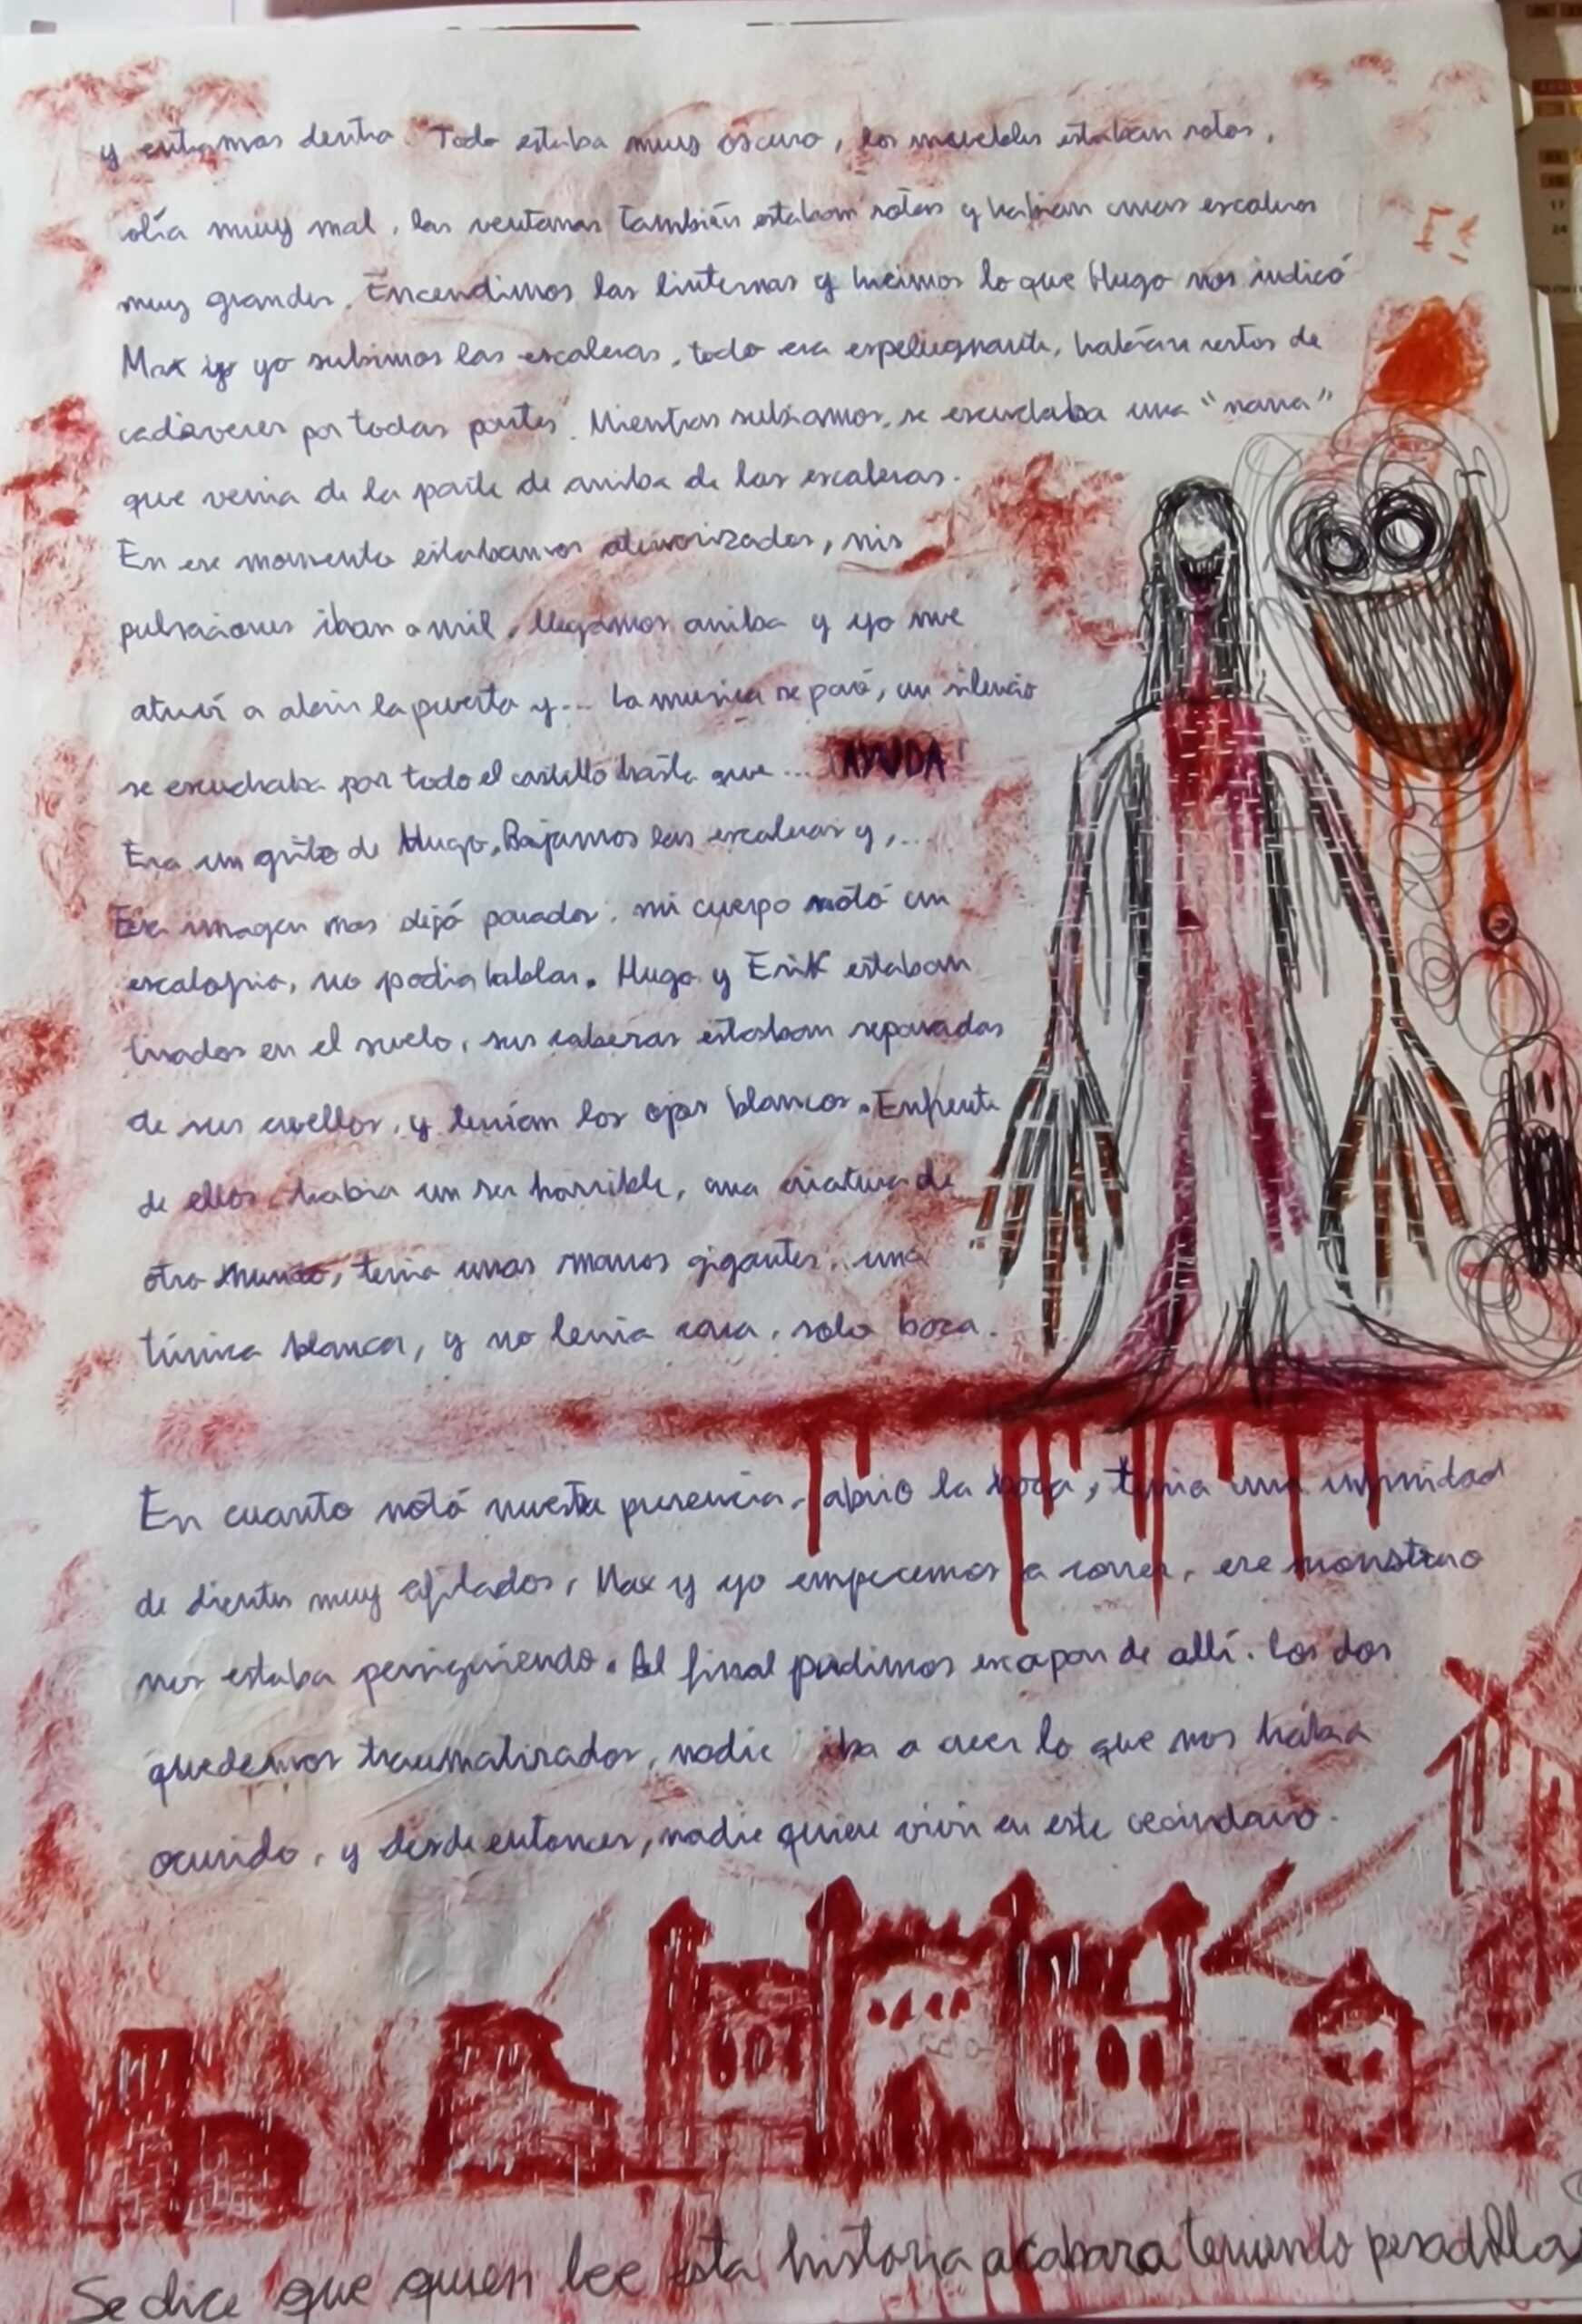 y entramos dentro. Todo estaba muy oscuro, los muebles estaban rotos,
olía muy mal, las ventanas también estaban rotas y habian unas escaleras
muy grandes. Encendimos las linternas y hicimos lo que Hugo nos indicó
Max y yo subimos las escaleras, todo era espeluznante, habían restos de
cadáveres por todas partes. Mientras subiamos, se escuchaba una "nana"
que venia de la parte de arriba de las escaleras.
En ese momento estabamos aterrorizados, mis
pulsaciones iban a mil, llegamos arriba y yo me
atreví a abrir la puerta y... La musica se paró, un silencio
se escuchaba por todo el castillo hasta que... ¡AYUDA!
Era un grito de Hugo, Bajamos las escaleras y,...
Esa imagen nos dejó parados, mi cuerpo notó un
escalofrio, no podia hablar. Hugo y Erik estaban
tirados en el suelo, sus cabezas estaban separadas
de sus cuellos, y tenían los ojos blancos. Enfrente
de ellos habia un ser horrible, una criatura de
otro mundo, tenia unas manos gigantes, una
túnica blanca, y no tenia cara, solo boca.
En cuanto notó nuestra presencia, abrio la boca, tenia una infinidad
de dientes muy afilados, Max y yo empecemos a correr, ese monstruo
nos estaba persiguiendo. Al final pudimos escapar de allí. Los dos
quedemos traumatizados, nadie iba a creer lo que nos habia
ocurrido, y desde entonces, nadie quiere vivir en este vecindario.
Se dice que quien lee esta historia acabara teniendo pesadillas